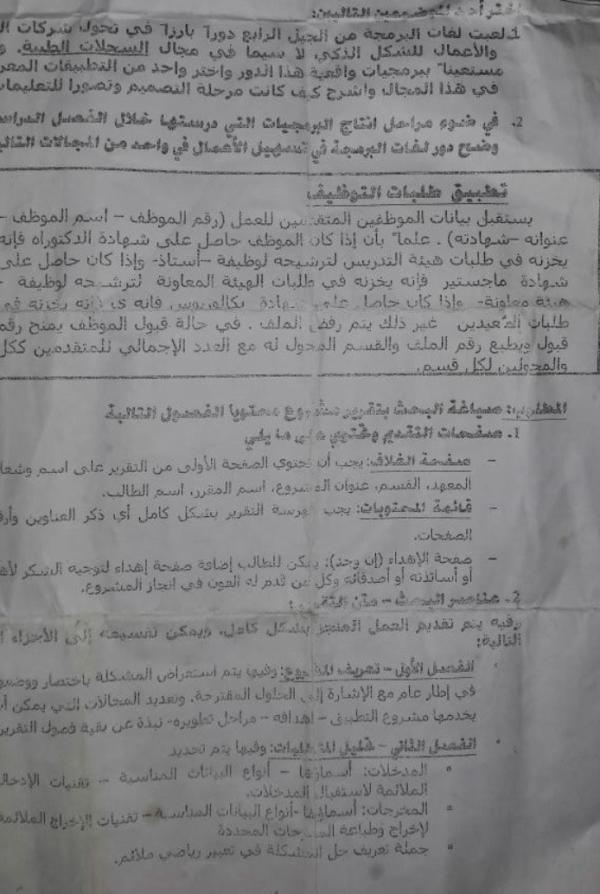 اختر أحد الموضوعين التاليين:
1. لعبت لغات البرمجة من الجيل الرابع دوراً بارزاً في تحول شركات
والأعمال للشكل الذكي لا سيما في مجال السجلات الطبية،
مستعيناً ببرمجيات واقعية هذا الدور واختر واحد من التطبيقات
في هذا المجال واشرح كيف كانت مرحلة التصميم وتصورا للتعليمات
2. في ضوء مراحل انتاج البرمجيات التي درستها خلال الفصل
وضح دور لغات البرمجة في تسهيل الأعمال في واحد من المجالات
تطبيق طلبات التوظيف
يستقبل بيانات الموظفين المتقدمين للعمل (رقم الموظف – اسم الموظف –
عنوانه –شهادته) . علماً بأن إذا كان الموظف حاصل على شهادة الدكتوراه فإنه
يخزنه في طلبات هيئة التدريس لترشيحه لوظيفة –أستاذ- وإذا كان حاصل على
شهادة ماجستير فإنه يخزنه في طلبات الهيئة المعاونة لترشيحه لوظيفة -
هيئة معاونة- وإذا كان حاصل على شهادة بكالوريوس فإنه يخزنه في
طلبات المعيدين غير ذلك يتم رفض الملف . في حالة قبول الموظف يمنح رقم
قبول ويطبع رقم الملف والقسم المحول له مع العدد الإجمالي للمتقدمين ككل
والمحولين لكل قسم.
المطلوب: صياغة البحث بتقرير مشروع محتويا الفصول التالية
1. صفحات التقديم وتحتوي على ما يلي
– صفحة الغلاف: يجب أن تحتوي الصفحة الأولى من التقرير على اسم وشعار
المعهد، القسم، عنوان المشروع، اسم المقرر، اسم الطالب.
– قائمة المحتويات: يجب فهرسة التقرير بشكل كامل أي ذكر العناوين
الصفحات.
– صفحة الإهداء (إن وجد): يمكن للطالب إضافة صفحة إهداء لتوجيه الشكر
أو أساتذته أو أصدقائه وكل من قدم له العون في انجاز المشروع.
2. عناصر البحث – متن التقرير:
وفيه يتم تقديم العمل المنجز بشكل كامل، ويمكن تقسيمه إلى الأجزاء
التالية:
• الفصل الأول – تعريف المشروع: وفيه يتم استعراض المشكلة باختصار ووضوح
في إطار عام مع الإشارة إلى الحلول المقترحة، وتحديد المجالات التي يمكن أن
يخدمها مشروع التطبيق – أهدافه – مراحل تطويره- نبذة عن بقية فصول التقرير
• الفصل الثاني – تحليل المتطلبات: وفيها يتم تحديد
• المدخلات: أسماؤها – أنواع البيانات المناسبة – تقنيات الإدخال
الملائمة لاستقبال المدخلات.
• المخرجات: أسماؤها -أنواع البيانات المناسبة – تقنيات الإخراج الملائمة
لإخراج وطباعة المخرجات المحددة
• جملة تعريف حل المشكلة في تعبير رياضي ملائم.